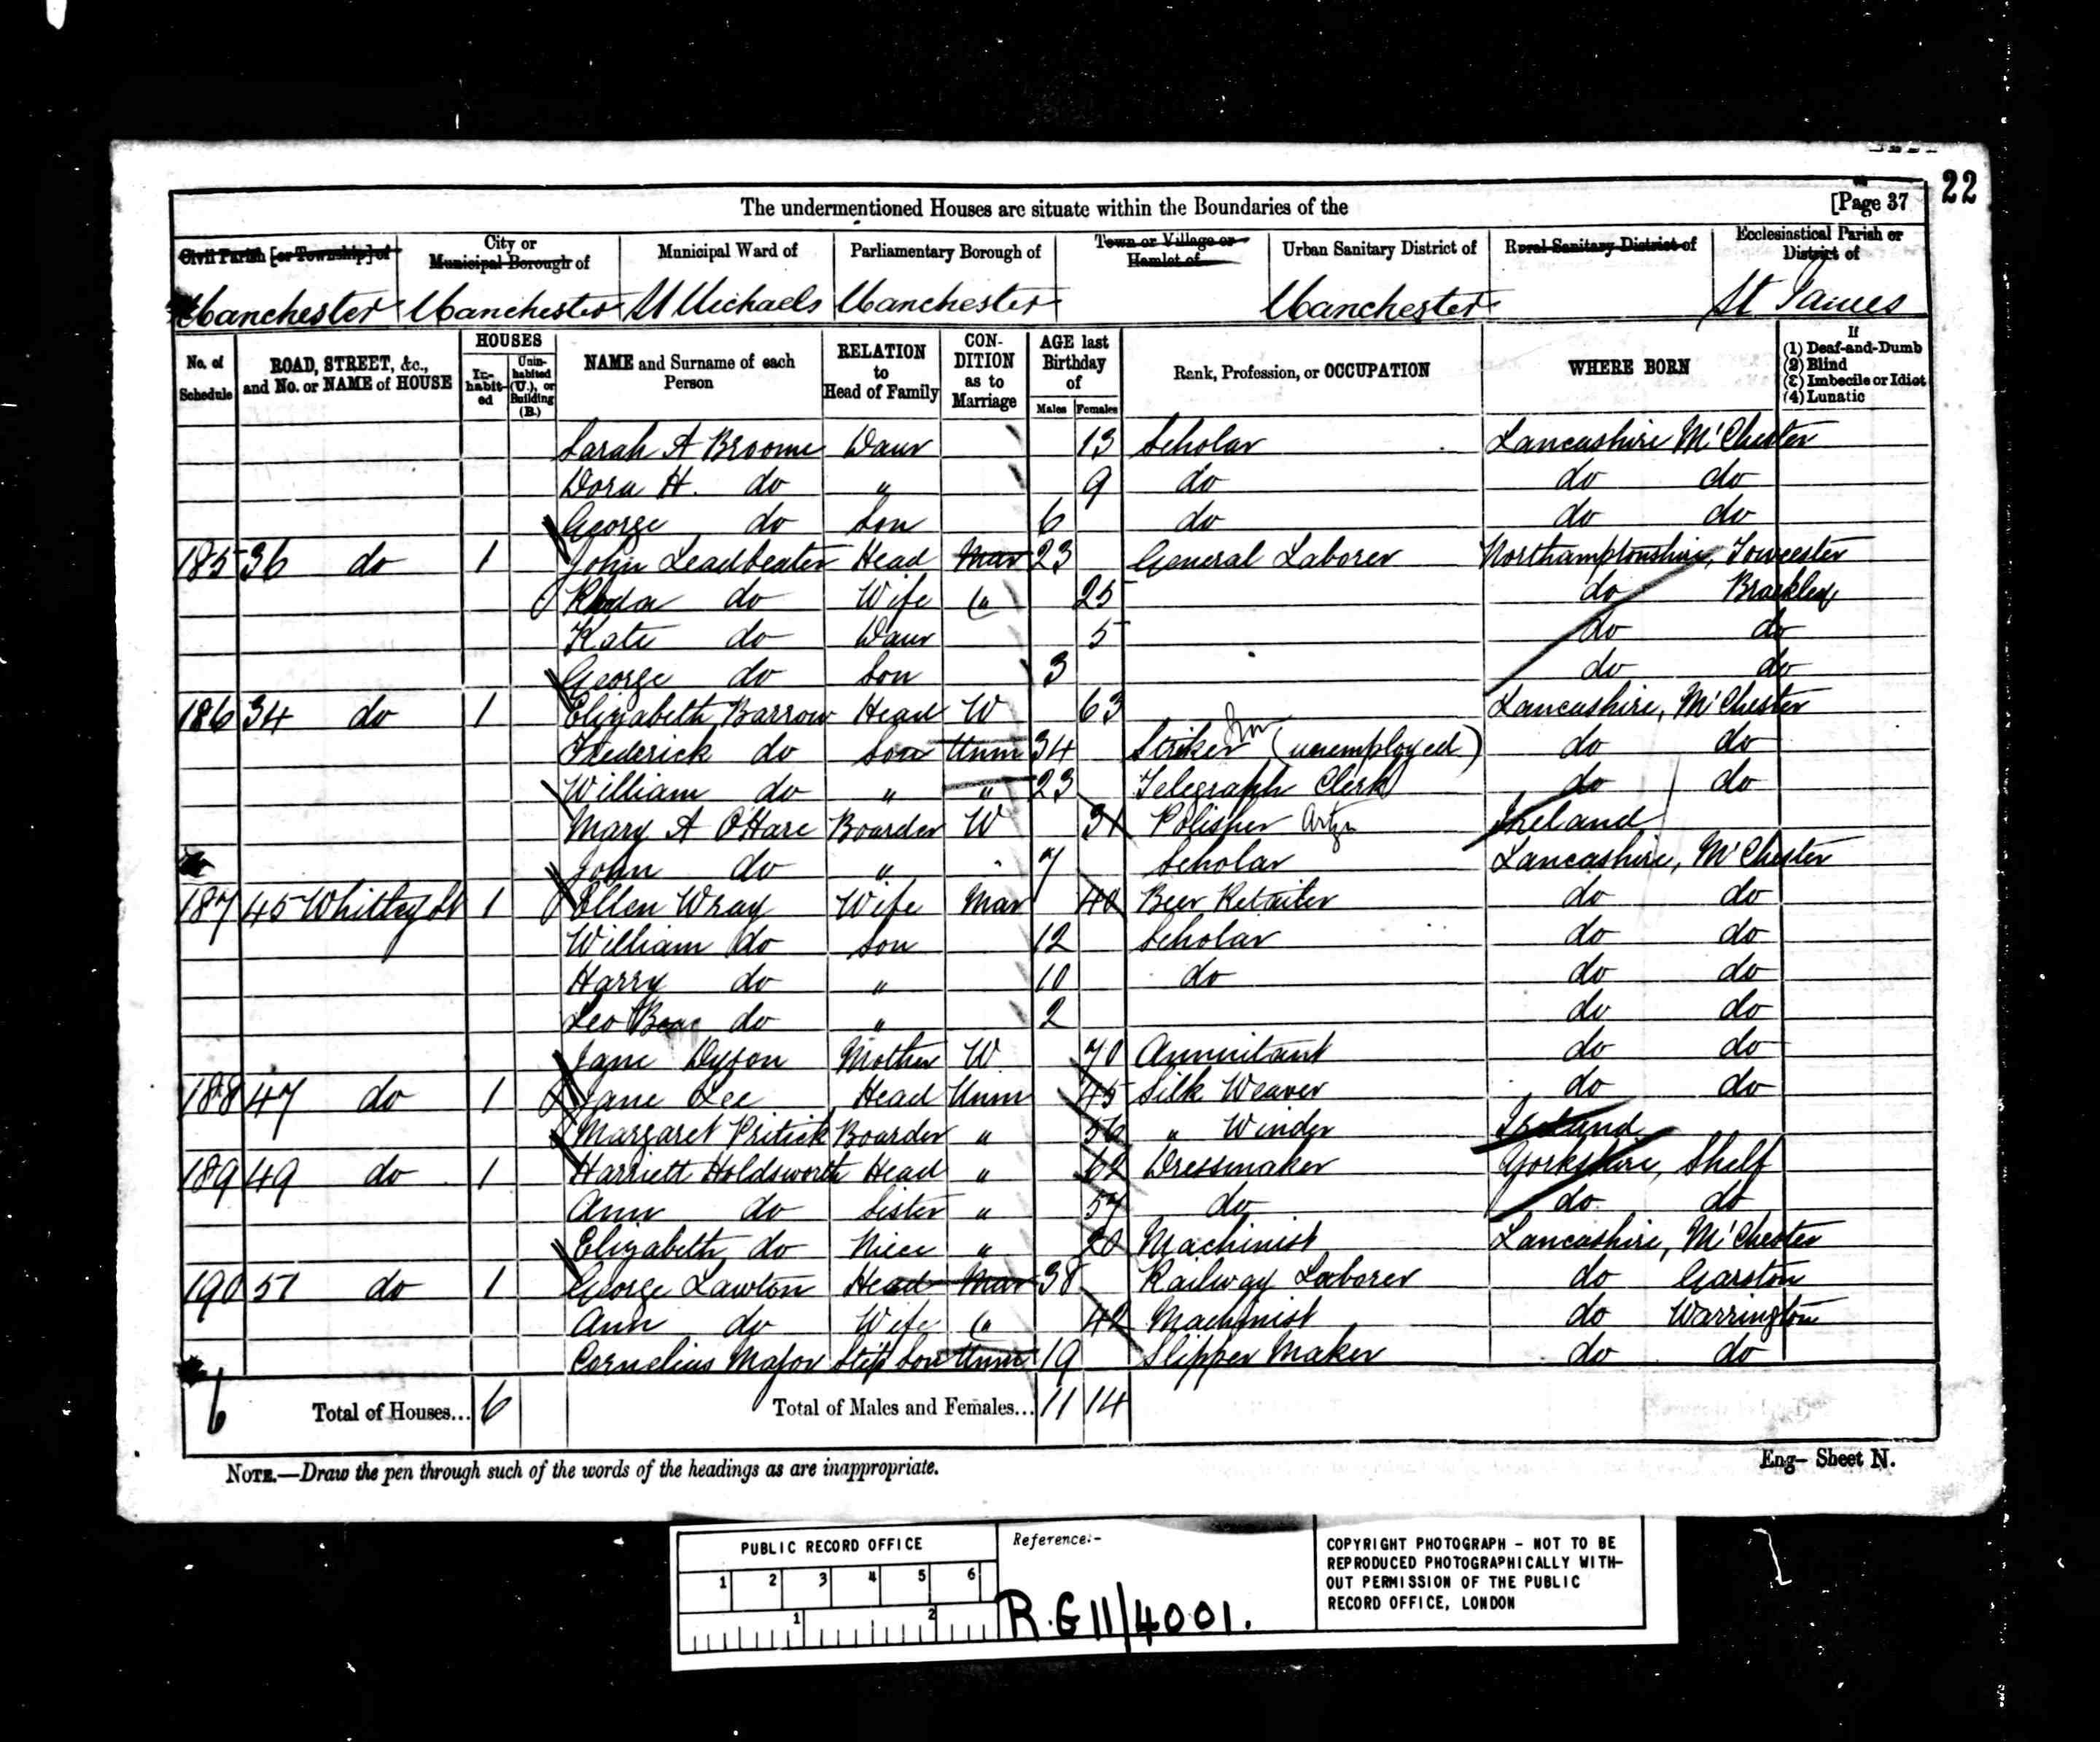 22
The undermentioned Houses are situate within the Boundaries of the [Page 37
Civil Parish [or Township] of City or Municipal Borough of Municipal Ward of Parliamentary Borough of Town or Village or Hamlet of Urban Sanitary District of Rural Sanitary District of Ecclesiastical Parish or District of
Manchester Manchester St Michaels Manchester Manchester St James
No. of Schedule ROAD, STREET, &c., and No. or NAME of HOUSE HOUSES Inhabited Uninhabited (U.), or Building (B.) NAME and Surname of each Person RELATION to Head of Family CONDITION as to Marriage AGE last Birthday of Males Females Rank, Profession, or OCCUPATION WHERE BORN If (1) Deaf-and-Dumb (2) Blind (3) Imbecile or Idiot (4) Lunatic
Sarah A Broome Daur 13 Scholar Lancashire M'Chester
Dora H. do " 9 do do do
George do Son 6 do do do
185 36 do 1 John Leadbeater Head Mar 23 General Laborer Northamptonshire, Towcester
Rhoda do Wife " 25 do Brackley
Kate do Daur 5 do do
George do Son 3 do do
186 34 do 1 Elizabeth Barrow Head W 63 Lancashire, M'Chester
Frederick do Son Unm 34 Striker Iron (unemployed) do do
William do " " 23 Telegraph Clerk do do
Mary A O'Hare Boarder W 31 Polisher Ireland
John do " 7 Scholar Lancashire, M'Chester
187 45 Whitley St 1 Ellen Wray Wife Mar 40 Beer Retailer do do
William do Son 12 Scholar do do
Harry do " 10 do do do
Leo do " 2 do do
Jane Dyson Mother W 70 Annuitant do do
188 47 do 1 Jane Lee Head Unm 45 Silk Weaver do do
Margaret Pritick Boarder " 56 " Winder Ireland
189 49 do 1 Harriett Holdsworth Head " 62 Dressmaker Yorkshire, Shelf
Ann do Sister " 57 do do do
Elizabeth do Niece " 20 Machinist Lancashire, M'Chester
190 51 do 1 George Lawton Head Mar 38 Railway Laborer do Garston
Ann do Wife " 42 Machinist do Warrington
Cornelius Major Step Son Unm 19 Slipper Maker do do
6 Total of Houses... 6 Total of Males and Females... 11 14
NOTE.—Draw the pen through such of the words of the headings as are inappropriate.
Eng— Sheet N.
PUBLIC RECORD OFFICE
1 2 3 4 5 6
1 2
Reference:-
R.G 11/4001.
COPYRIGHT PHOTOGRAPH - NOT TO BE
REPRODUCED PHOTOGRAPHICALLY WITH-
OUT PERMISSION OF THE PUBLIC
RECORD OFFICE, LONDON